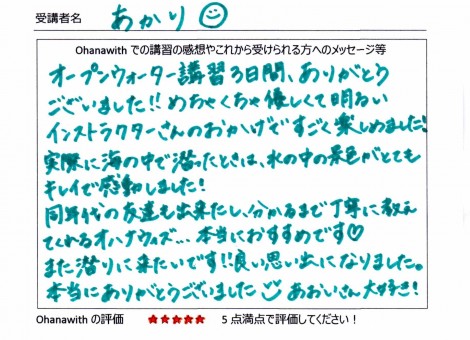 受講者名 あかり
Ohanawith での講習の感想やこれから受けられる方へのメッセージ等
オープンウォーター講習3日間、ありがとう
ございました!! めちゃくちゃ優しくて明るい
インストラクターさんのおかげですごく楽しめました!
実際に海の中で潜ったときは、水の中の景色がとても
キレイで感動しました!
同年代の友達も出来たし、分かるまで丁寧に教え
てくれるオハナウィズ... 本当におすすめです♡
また潜りに来たいです!! 良い思い出になりました。
本当にありがとうございました あおいさん大好き!
Ohanawith の評価 ★★★★★ 5 点満点で評価してください！